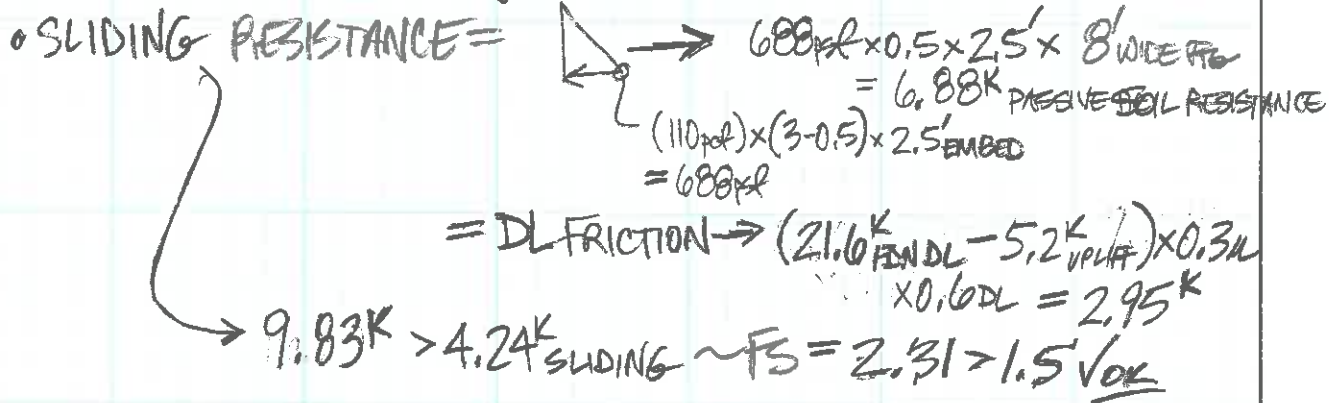 • SLIDING RESISTANCE = → 688psf×0.5×2.5'× 8' WIDE FTG
= 6.88K PASSIVE SOIL RESISTANCE
(110pcf)×(3-0.5)×2.5' EMBED
= 688psf
= DL FRICTION → (21.6K FDN DL - 5.2K UPLIFT)×0.3μ
×0.6DL = 2.95K
→ 9.83K > 4.24K SLIDING ~ FS = 2.31 > 1.5 √OK